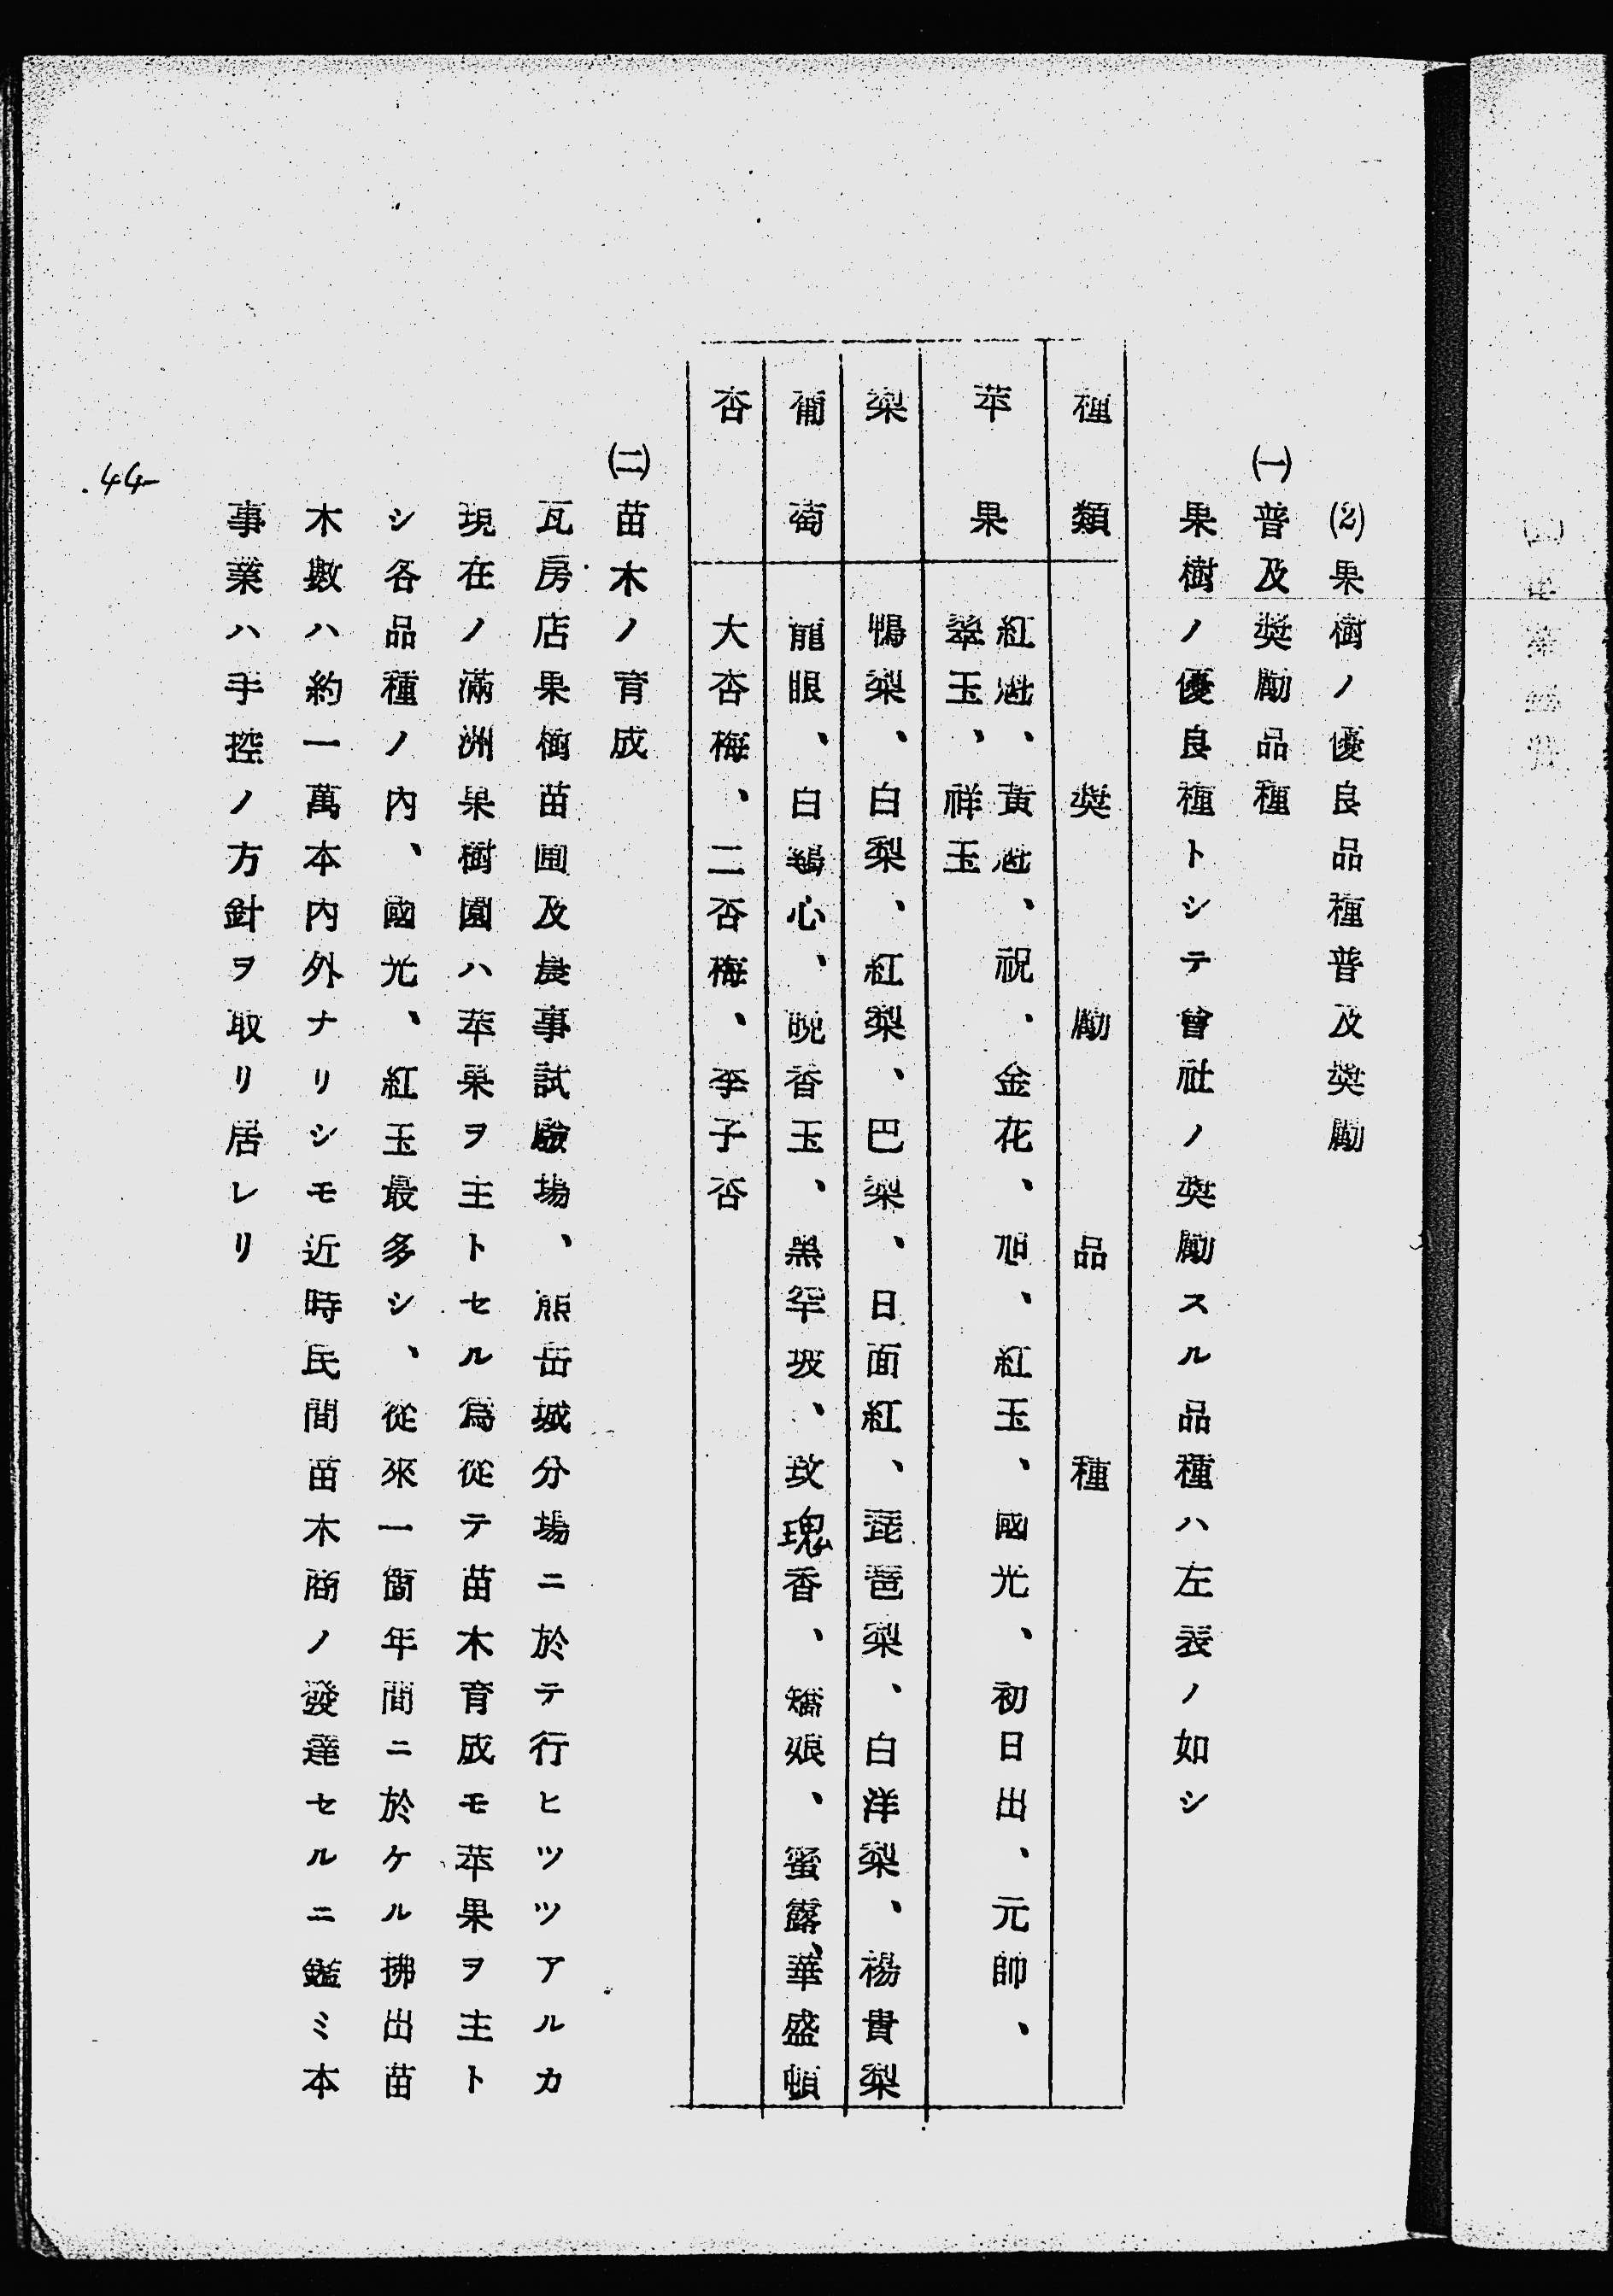 (2)果樹ノ優良品種普及奬勵
(一)普及奬勵品種
果樹ノ優良種トシテ會社ノ奬勵スル品種ハ左表ノ如シ
種類 奬勵品種
苹果 紅魁、黃魁、祝、金花、旭、紅玉、國光、初日出、元帥、
翠玉、祥玉
梨 鴨梨、白梨、紅梨、巴梨、日面紅、琵琶梨、白洋梨、楊貴梨
葡萄 龍眼、白鷄心、晩香玉、黑罕坂、玫瑰香、矯娘、蜜露、華盛頓
杏 大杏梅、二杏梅、李子杏
(二)苗木ノ育成
瓦房店果樹苗圃及農事試驗場、熊岳城分場ニ於テ行ヒツツアルカ
現在ノ滿洲果樹園ハ苹果ヲ主トセル爲從テ苗木育成モ苹果ヲ主ト
シ各品種ノ內、國光、紅玉最多シ、從來一箇年間ニ於ケル拂出苗
木數ハ約一萬本內外ナリシモ近時民間苗木商ノ發達セルニ鑑ミ本
事業ハ手控ノ方針ヲ取リ居レリ
44